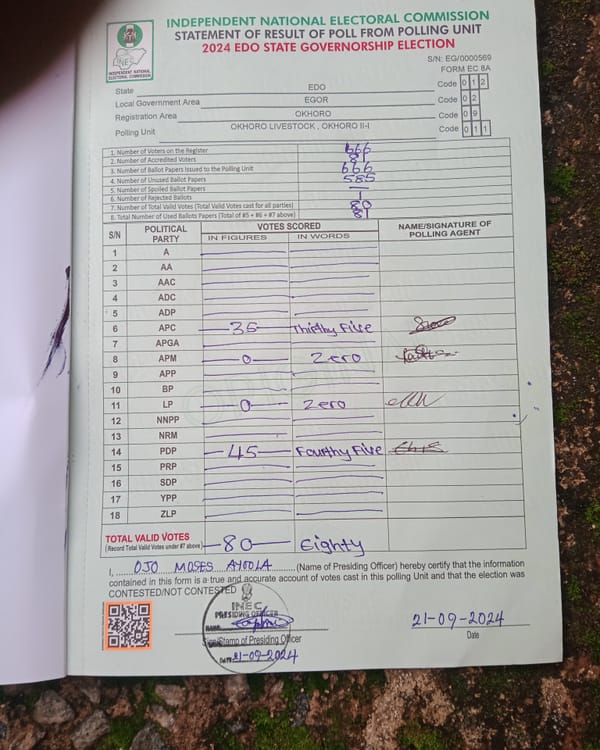 INDEPENDENT NATIONAL ELECTORAL COMMISSION
STATEMENT OF RESULT OF POLL FROM POLLING UNIT
2024 EDO STATE GOVERNORSHIP ELECTION
INEC
INDEPENDENT NATIONAL ELECTORAL COMMISSION
S/N: EG/0000569
FORM EC 8A
State EDO Code 0 1 2
Local Government Area EGOR Code 0 2
Registration Area OKHORO Code 0 9
Polling Unit OKHORO LIVESTOCK , OKHORO II-I Code 0 1 1
1. Number of Voters on the Register 666
2. Number of Accredited Voters 81
3. Number of Ballot Papers Issued to the Polling Unit 666
4. Number of Unused Ballot Papers 585
5. Number of Spoiled Ballot Papers —
6. Number of Rejected Ballots 1
7. Number of Total Valid Votes (Total Valid Votes cast for all parties) 80
8. Total Number of Used Ballots Papers (Total of #5 + #6 + #7 above) 81
S/N POLITICAL PARTY VOTES SCORED NAME/SIGNATURE OF POLLING AGENT
IN FIGURES IN WORDS
1 A
2 AA
3 AAC
4 ADC
5 ADP
6 APC 35 Thirthy Five
7 APGA
8 APM 0 Zero
9 APP
10 BP
11 LP 0 Zero
12 NNPP
13 NRM
14 PDP 45 Fourthy Five
15 PRP
16 SDP
17 YPP
18 ZLP
TOTAL VALID VOTES 80 Eighty
(Record Total Valid Votes under #7 above)
I, OJO MOSES AYOOLA (Name of Presiding Officer) hereby certify that the information
contained in this form is a true and accurate account of votes cast in this polling Unit and that the election was
CONTESTED/NOT CONTESTED
INEC
PRESIDING OFFICER
Sign/Stamp of Presiding Officer
DATE 21-09-2024
21-09-2024
Date